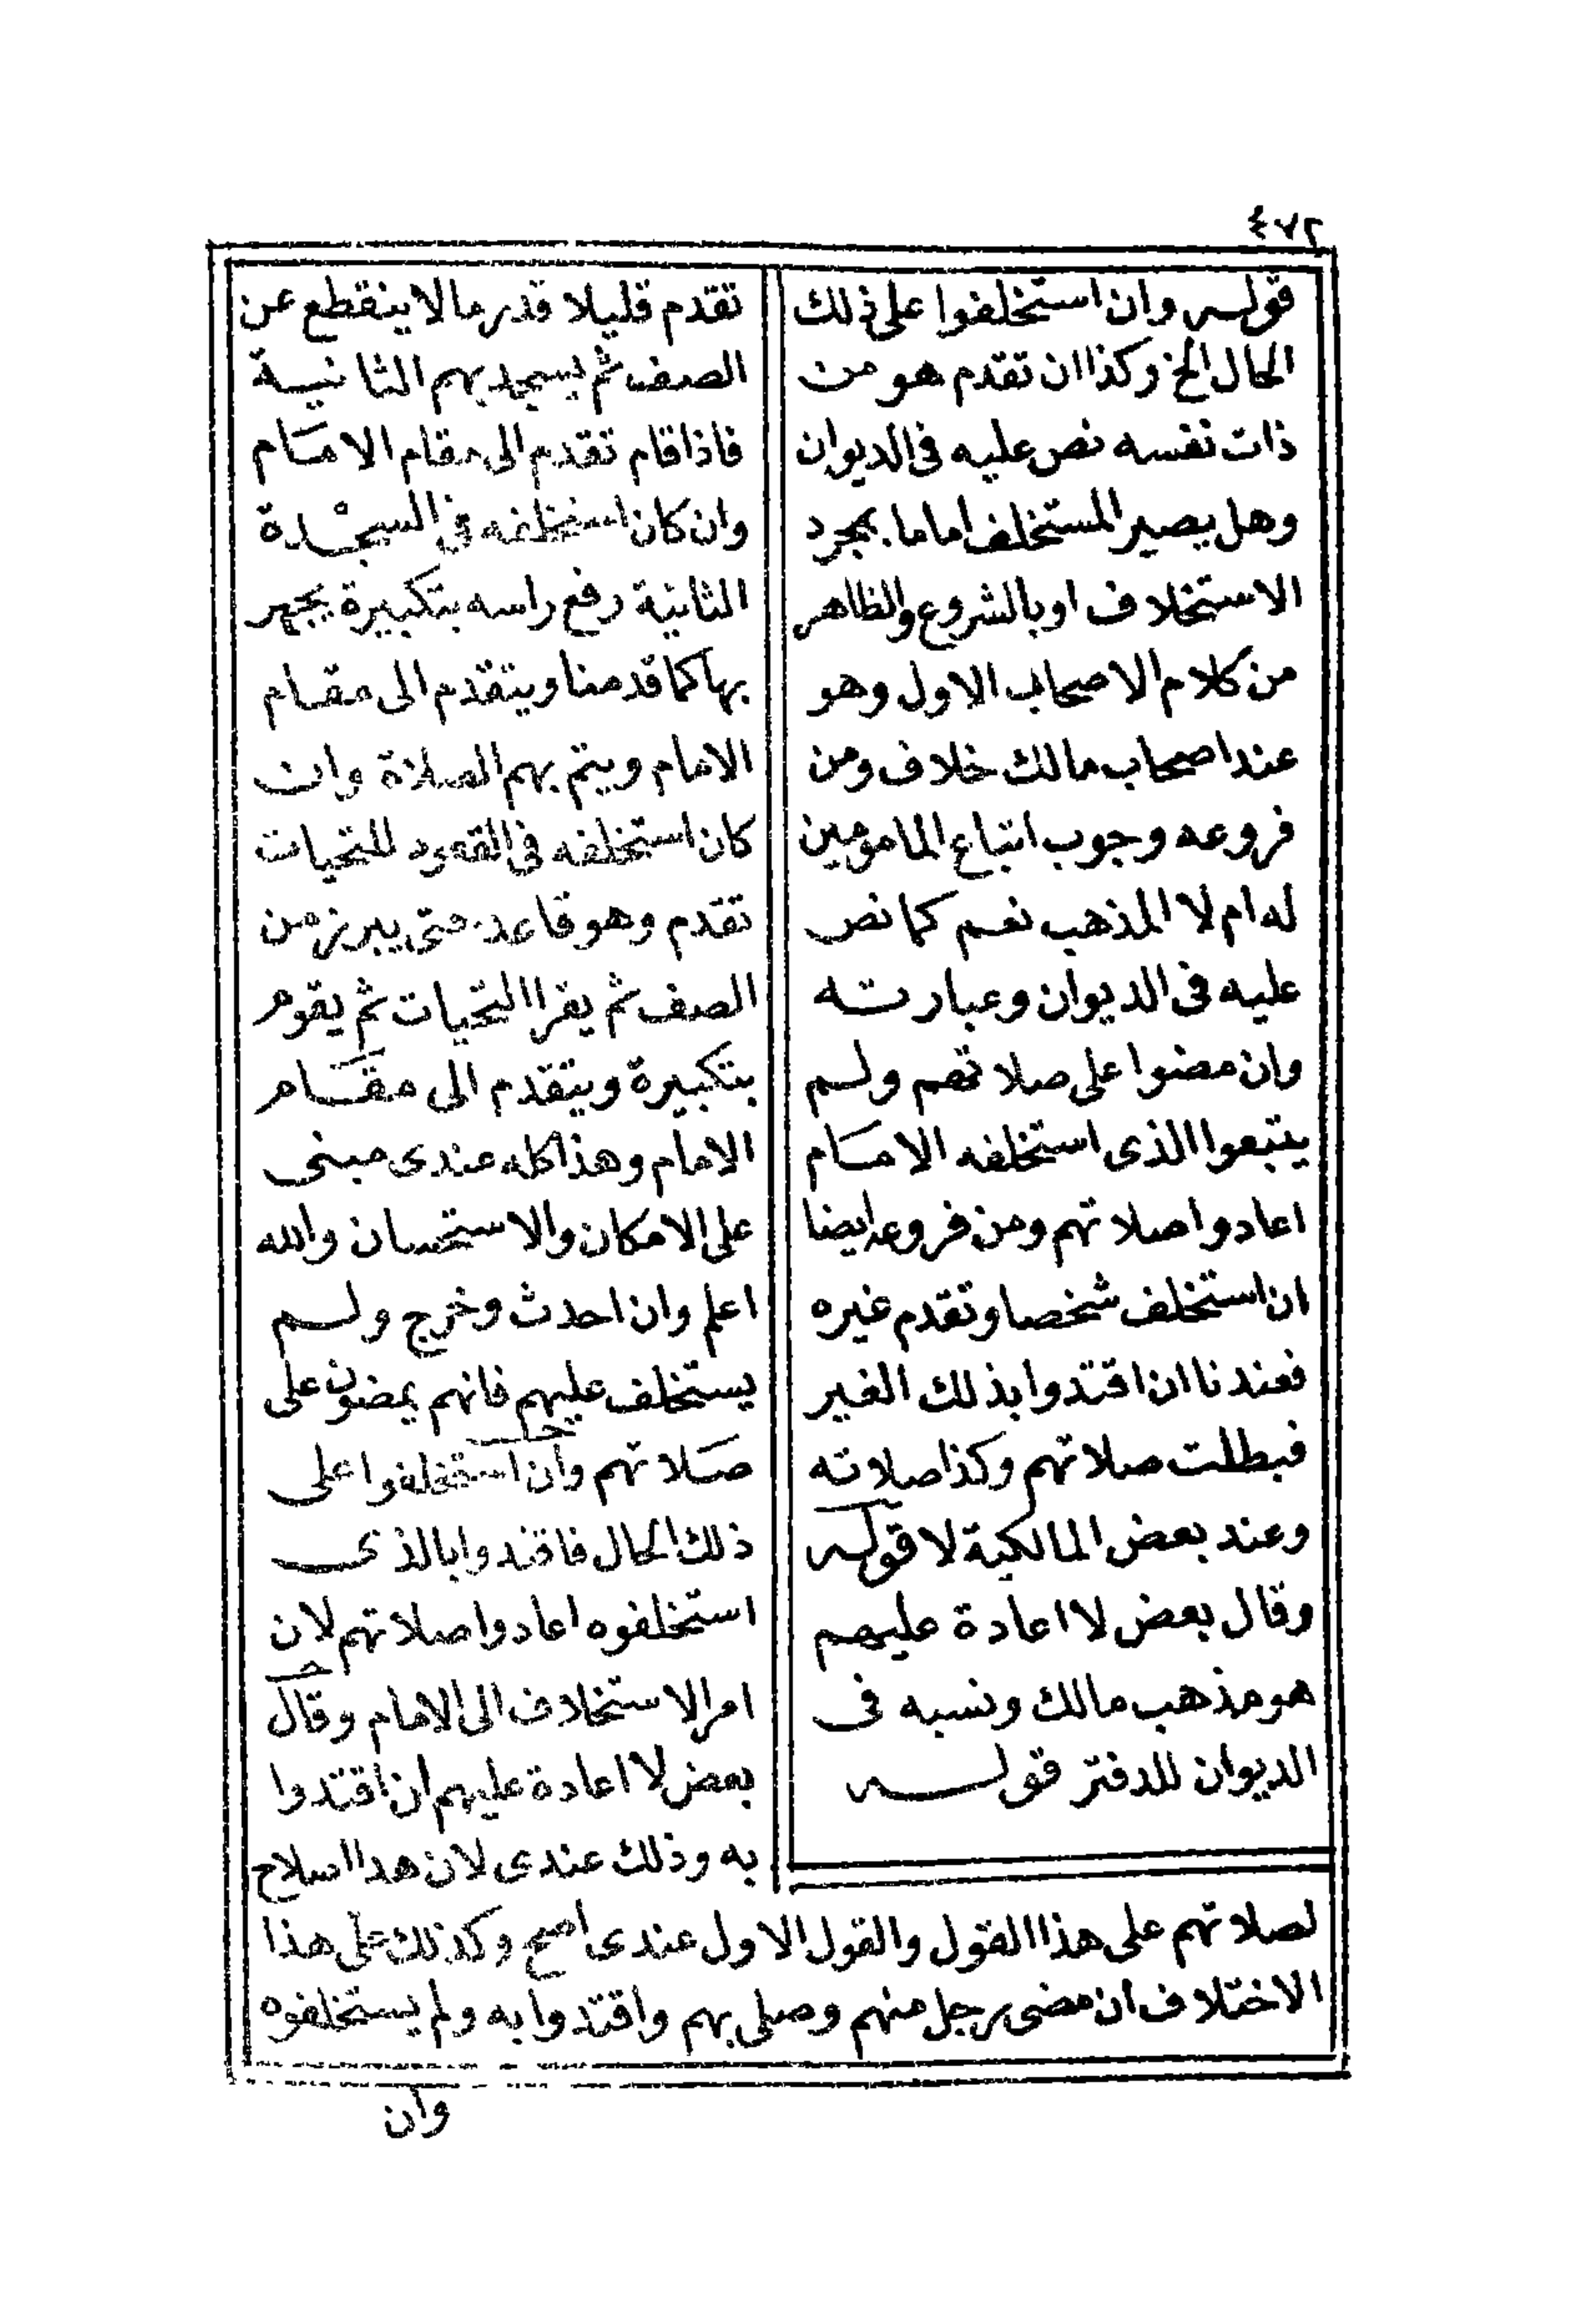 ٤٧٢
قوله وان استخلفوا على ذلك
الحال الخ وكذا ان تقدم هو من
ذات نفسه نص عليه فى الديوان
وهل يصير المستخلف اماما بمجرد
الاستخلاف او بالشروع والظاهر
من كلام الاصحاب الاول وهو
عند اصحاب مالك خلاف ومن
فروعه وجوب اتباع المامومين
له ام لا المذهب نعم كما نص
عليه فى الديوان وعبارته
وان مضوا على صلاتهم ولم
يتبعوا الذى استخلفه الامام
اعادوا صلاتهم ومن فروعه ايضا
ان استخلف شخصا وتقدم غيره
فعندنا ان اقتدوا بذلك الغير
فبطلت صلاتهم وكذا صلاته
وعند بعض المالكية لا قوله
وقال بعض لا اعادة عليهم
هو مذهب مالك ونسبه فى
الديوان للدفتر قوله
تقدم قليلا قدر ما لا ينقطع عن
الصف ثم يسجد بهم الثانية
فاذا قام تقدم الى مقام الامام
وان كان استخلفه فى السجدة
الثانية رفع راسه بتكبيرة يجهر
بها كما قدمنا ويتقدم الى مقام
الامام ويتم بهم الصلاة وان
كان استخلفه فى القعود للتحيات
تقدم وهو قاعد حتى يبرز من
الصف ثم يقرا التحيات ثم يقوم
بتكبيرة ويتقدم الى مقام
الامام وهذا كله عندى مبنى
على الامكان والاستحسان والله
اعلم وان احدث وخرج ولم
يستخلف عليهم فانهم يمضون على
صلاتهم وان استخلفوا على
ذلك الحال فاقتدوا بالذى
استخلفوه اعادوا صلاتهم لان
امر الاستخلاف الى الامام وقال
بعض لا اعادة عليهم ان اقتدوا
به وذلك عندى لان هذا اصلاح
لصلاتهم على هذا القول والقول الاول عندى اصح وكذلك على هذا
الاختلاف ان مضى رجل منهم وصلى بهم واقتدوا به ولم يستخلفوه
وان